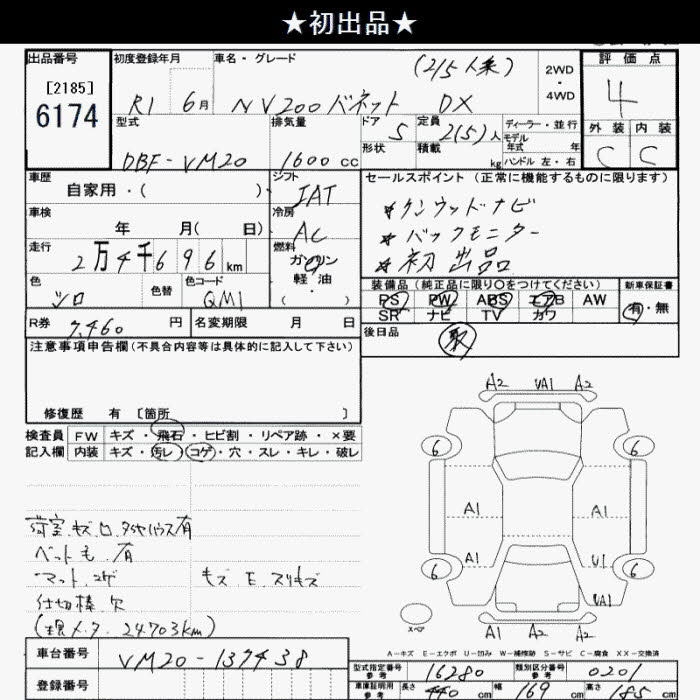 ★初出品★
出品番号 初度登録年月 車名・グレード (2/5人乗) 2WD・4WD 評価点
[2185]
6174
R1 6月 NV200バネット DX 4
型式 排気量 ドア 5 定員 2(5)人 ディーラー・並行 外装 内装
形状 積載 kg モデル年式 年
ハンドル 左・右
DBF-VM20 1600cc C C
車歴 シフト セールスポイント(正常に機能するものに限ります)
自家用・( ) IAT
☆ケンウッドナビ
車検 冷房
年 月( 日) AC
☆バックモニター
走行 燃料
2万4千696km ガソリン
☆初出品
軽油・( )
色 色替 色コード 装備品(純正品に限り○をつけてください) 新車保証書
シロ QM1 PS PW ABS エアB AW 有・無
SR ナビ TV カワ
R券 7,460円 名変期限 月 日 後日品
取
注意事項申告欄(不具合内容等は具体的に記入して下さい)
修復歴 有[箇所 ]
検査員 FW キズ・飛石・ヒビ割・リペア跡・×要
記入欄 内装 キズ・汚レ・コゲ・穴・スレ・キレ・破レ
A2 VA1 A2
6 6
A1 A1
A1 U1
6 6
VA1
荷室.キズ.ロ.タイヤハウス有
ベットも.有
マット.コゲ キズ E.スリキズ
仕切棒.欠
(現メータ.24703km)
スペア
A2 A1 A2
A-キズ E-エクボ U-凹み W-補修跡 S-サビ C-腐食 XX-交換済
車台番号 VM20-137438
登録番号
型式指定番号 参考 16280 類別区分番号 参考 0201
車庫証明用 参考 長さ 440cm 幅 169cm 高さ 185cm